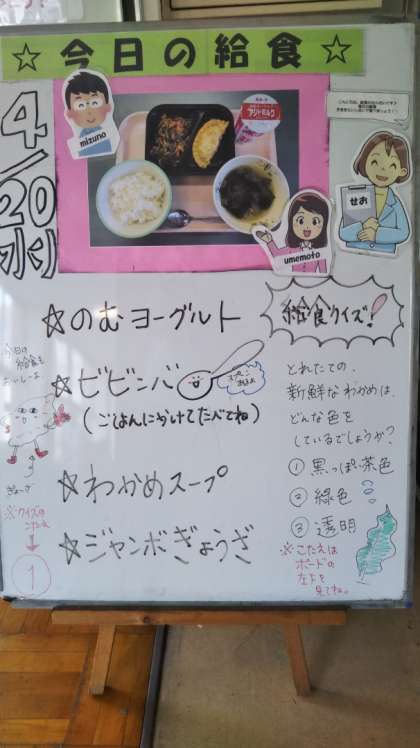 ☆今日の給食☆
4/20(水)
mizuno
umemoto
せお
☆のむヨーグルト
☆ビビンバ
(ごはんにかけてたべてね)
☆わかめスープ
☆ジャンボぎょうざ
給食クイズ!
とれたての、
新鮮なわかめは、
どんな色を
しているでしょうか?
① 黒っぽい茶色
② 緑色
③ 透明
※こたえは
ボードの
左下を
見てね。
今日の
給食も
おいしーよ
※クイズの
こたえ
↓
①